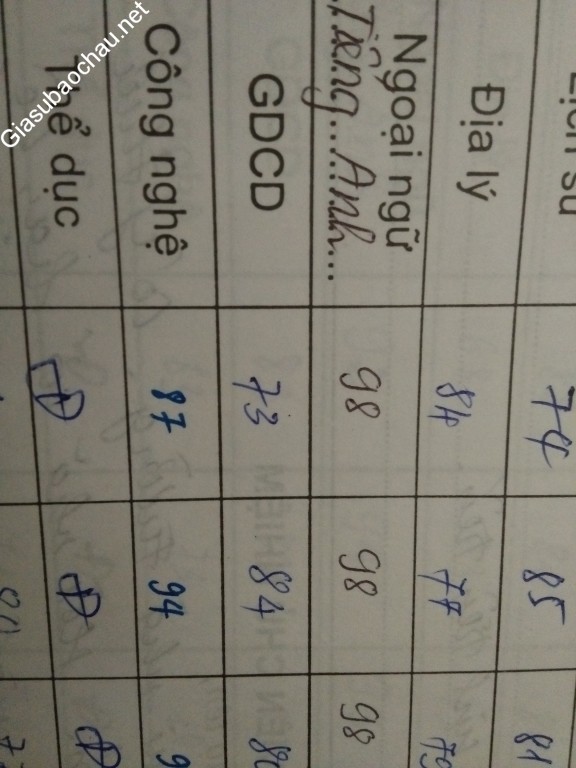 Giasubaochau.net
Lịch sử 74 85 81
Địa lý 84 77 79
Ngoại ngữ
Tiếng Anh... 98 98 98
GDCD 73 84
Công nghệ 87 94
Thể dục Đ Đ Đ